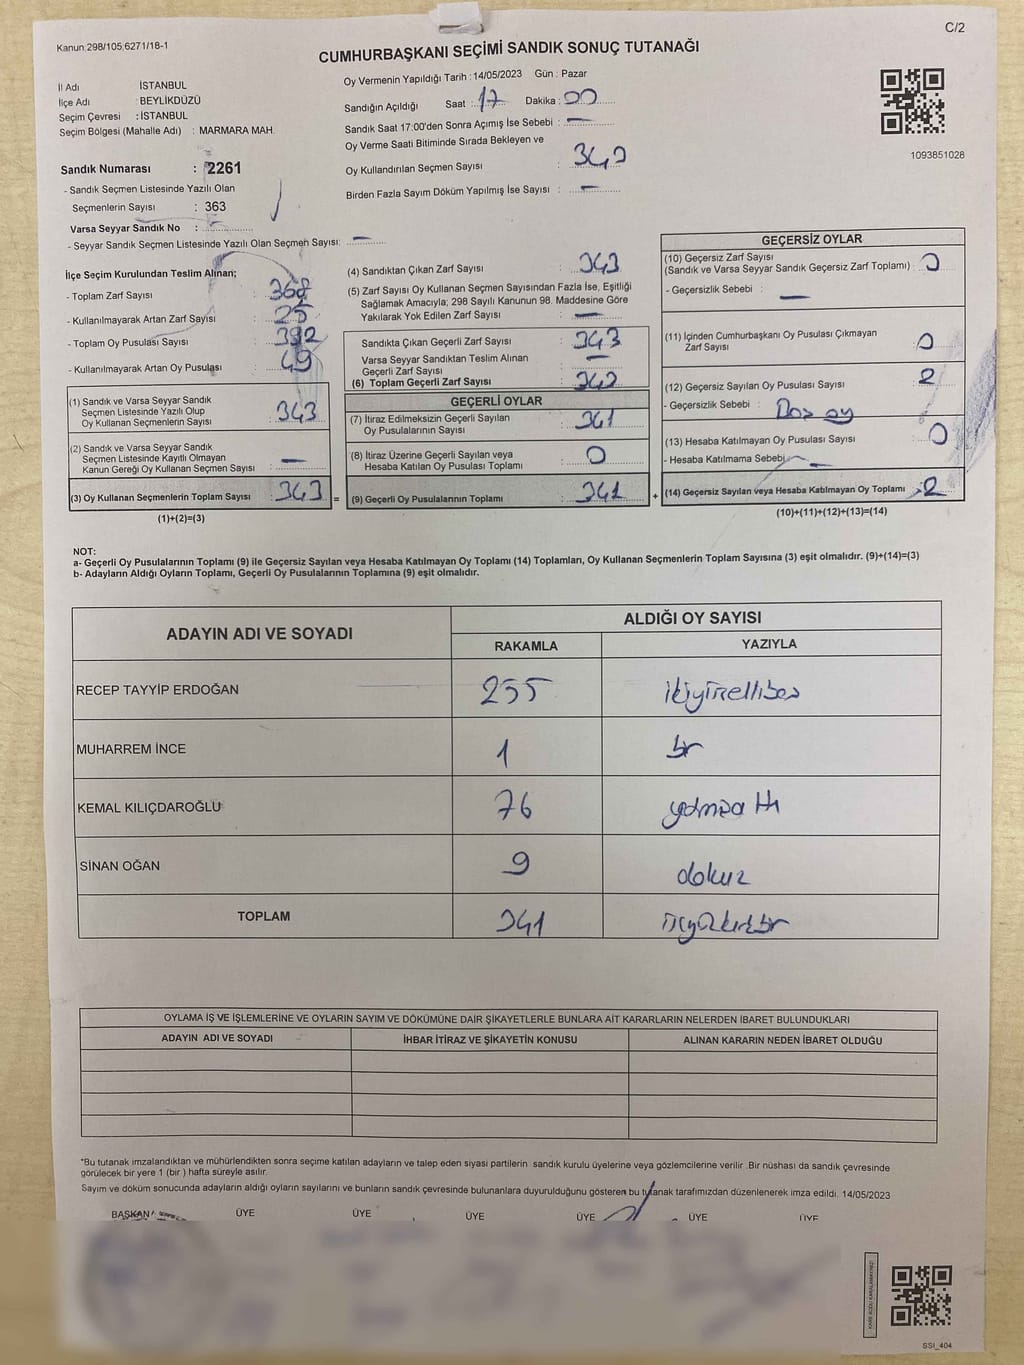 Kanun 298/105;6271/18-1
C/2
CUMHURBAŞKANI SEÇİMİ SANDIK SONUÇ TUTANAĞI
İl Adı İSTANBUL
İlçe Adı : BEYLİKDÜZÜ
Seçim Çevresi : İSTANBUL
Seçim Bölgesi (Mahalle Adı) : MARMARA MAH.
Sandık Numarası : 2261
- Sandık Seçmen Listesinde Yazılı Olan
Seçmenlerin Sayısı : 363
Varsa Seyyar Sandık No :
- Seyyar Sandık Seçmen Listesinde Yazılı Olan Seçmen Sayısı: —
Oy Vermenin Yapıldığı Tarih : 14/05/2023 Gün : Pazar
Sandığın Açıldığı Saat : 17 Dakika : 00
Sandık Saat 17:00'den Sonra Açımış İse Sebebi : —
Oy Verme Saati Bitiminde Sırada Bekleyen ve
Oy Kullandırılan Seçmen Sayısı :
Birden Fazla Sayım Döküm Yapılmış İse Sayısı : —
1093851028
İlçe Seçim Kurulundan Teslim Alınan;
- Toplam Zarf Sayısı : 368
- Kullanılmayarak Artan Zarf Sayısı : 25
- Toplam Oy Pusulası Sayısı : 392
- Kullanılmayarak Artan Oy Pusulası : 49
(1) Sandık ve Varsa Seyyar Sandık
Seçmen Listesinde Yazılı Olup
Oy Kullanan Seçmenlerin Sayısı : 343
(2) Sandık ve Varsa Seyyar Sandık
Seçmen Listesinde Kayıtlı Olmayan
Kanun Gereği Oy Kullanan Seçmen Sayısı : —
(3) Oy Kullanan Seçmenlerin Toplam Sayısı : 343 =
(1)+(2)=(3)
(4) Sandıktan Çıkan Zarf Sayısı : 343
(5) Zarf Sayısı Oy Kullanan Seçmen Sayısından Fazla İse, Eşitliği
Sağlamak Amacıyla; 298 Sayılı Kanunun 98. Maddesine Göre
Yakılarak Yok Edilen Zarf Sayısı : —
Sandıkta Çıkan Geçerli Zarf Sayısı : 343
Varsa Seyyar Sandıktan Teslim Alınan
Geçerli Zarf Sayısı : —
(6) Toplam Geçerli Zarf Sayısı :
GEÇERLİ OYLAR
(7) İtiraz Edilmeksizin Geçerli Sayılan
Oy Pusulalarının Sayısı : 341
(8) İtiraz Üzerine Geçerli Sayılan veya
Hesaba Katılan Oy Pusulası Toplamı : 0
(9) Geçerli Oy Pusulalarının Toplamı : 341 +
GEÇERSİZ OYLAR
(10) Geçersiz Zarf Sayısı
(Sandık ve Varsa Seyyar Sandık Geçersiz Zarf Toplamı) : 0
- Geçersizlik Sebebi : —
(11) İçinden Cumhurbaşkanı Oy Pusulası Çıkmayan
Zarf Sayısı : 0
(12) Geçersiz Sayılan Oy Pusulası Sayısı : 2
- Geçersizlik Sebebi : Boş oy
(13) Hesaba Katılmayan Oy Pusulası Sayısı : 0
- Hesaba Katılmama Sebebi : —
(14) Geçersiz Sayılan veya Hesaba Katılmayan Oy Toplamı : 2
(10)+(11)+(12)+(13)=(14)
NOT:
a- Geçerli Oy Pusulalarının Toplamı (9) ile Geçersiz Sayılan veya Hesaba Katılmayan Oy Toplamı (14) Toplamları, Oy Kullanan Seçmenlerin Toplam Sayısına (3) eşit olmalıdır. (9)+(14)=(3)
b- Adayların Aldığı Oyların Toplamı, Geçerli Oy Pusulalarının Toplamına (9) eşit olmalıdır.
ADAYIN ADI VE SOYADI
ALDIĞI OY SAYISI
RAKAMLA YAZIYLA
RECEP TAYYİP ERDOĞAN 255 ikiyüzellibeş
MUHARREM İNCE 1 bir
KEMAL KILIÇDAROĞLU 76 yetmişaltı
SİNAN OĞAN 9 dokuz
TOPLAM 341 üçyüzkırkbir
OYLAMA İŞ VE İŞLEMLERİNE VE OYLARIN SAYIM VE DÖKÜMÜNE DAİR ŞİKAYETLERLE BUNLARA AİT KARARLARIN NELERDEN İBARET BULUNDUKLARI
ADAYIN ADI VE SOYADI İHBAR İTİRAZ VE ŞİKAYETİN KONUSU ALINAN KARARIN NEDEN İBARET OLDUĞU
*Bu tutanak imzalandıktan ve mühürlendikten sonra seçime katılan adayların ve talep eden siyasi partilerin sandık kurulu üyelerine veya gözlemcilerine verilir .Bir nüshası da sandık çevresinde
görülecek bir yere 1 (bir ) hafta süreyle asılır.
Sayım ve döküm sonucunda adayların aldığı oyların sayılarını ve bunların sandık çevresinde bulunanlara duyurulduğunu gösteren bu tutanak tarafımızdan düzenlenerek imza edildi. 14/05/2023
BAŞKAN ÜYE ÜYE ÜYE ÜYE ÜYE ÜYE
KARE KODU KARALAMAYINIZ!
SSİ_404